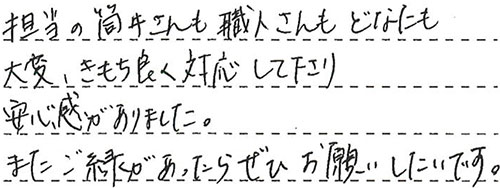 担当の筒井さんも職人さんもどなたにも
大変、きもち良く対応して下さり
安心感がありました。
またご縁があったらぜひお願いしたいです。